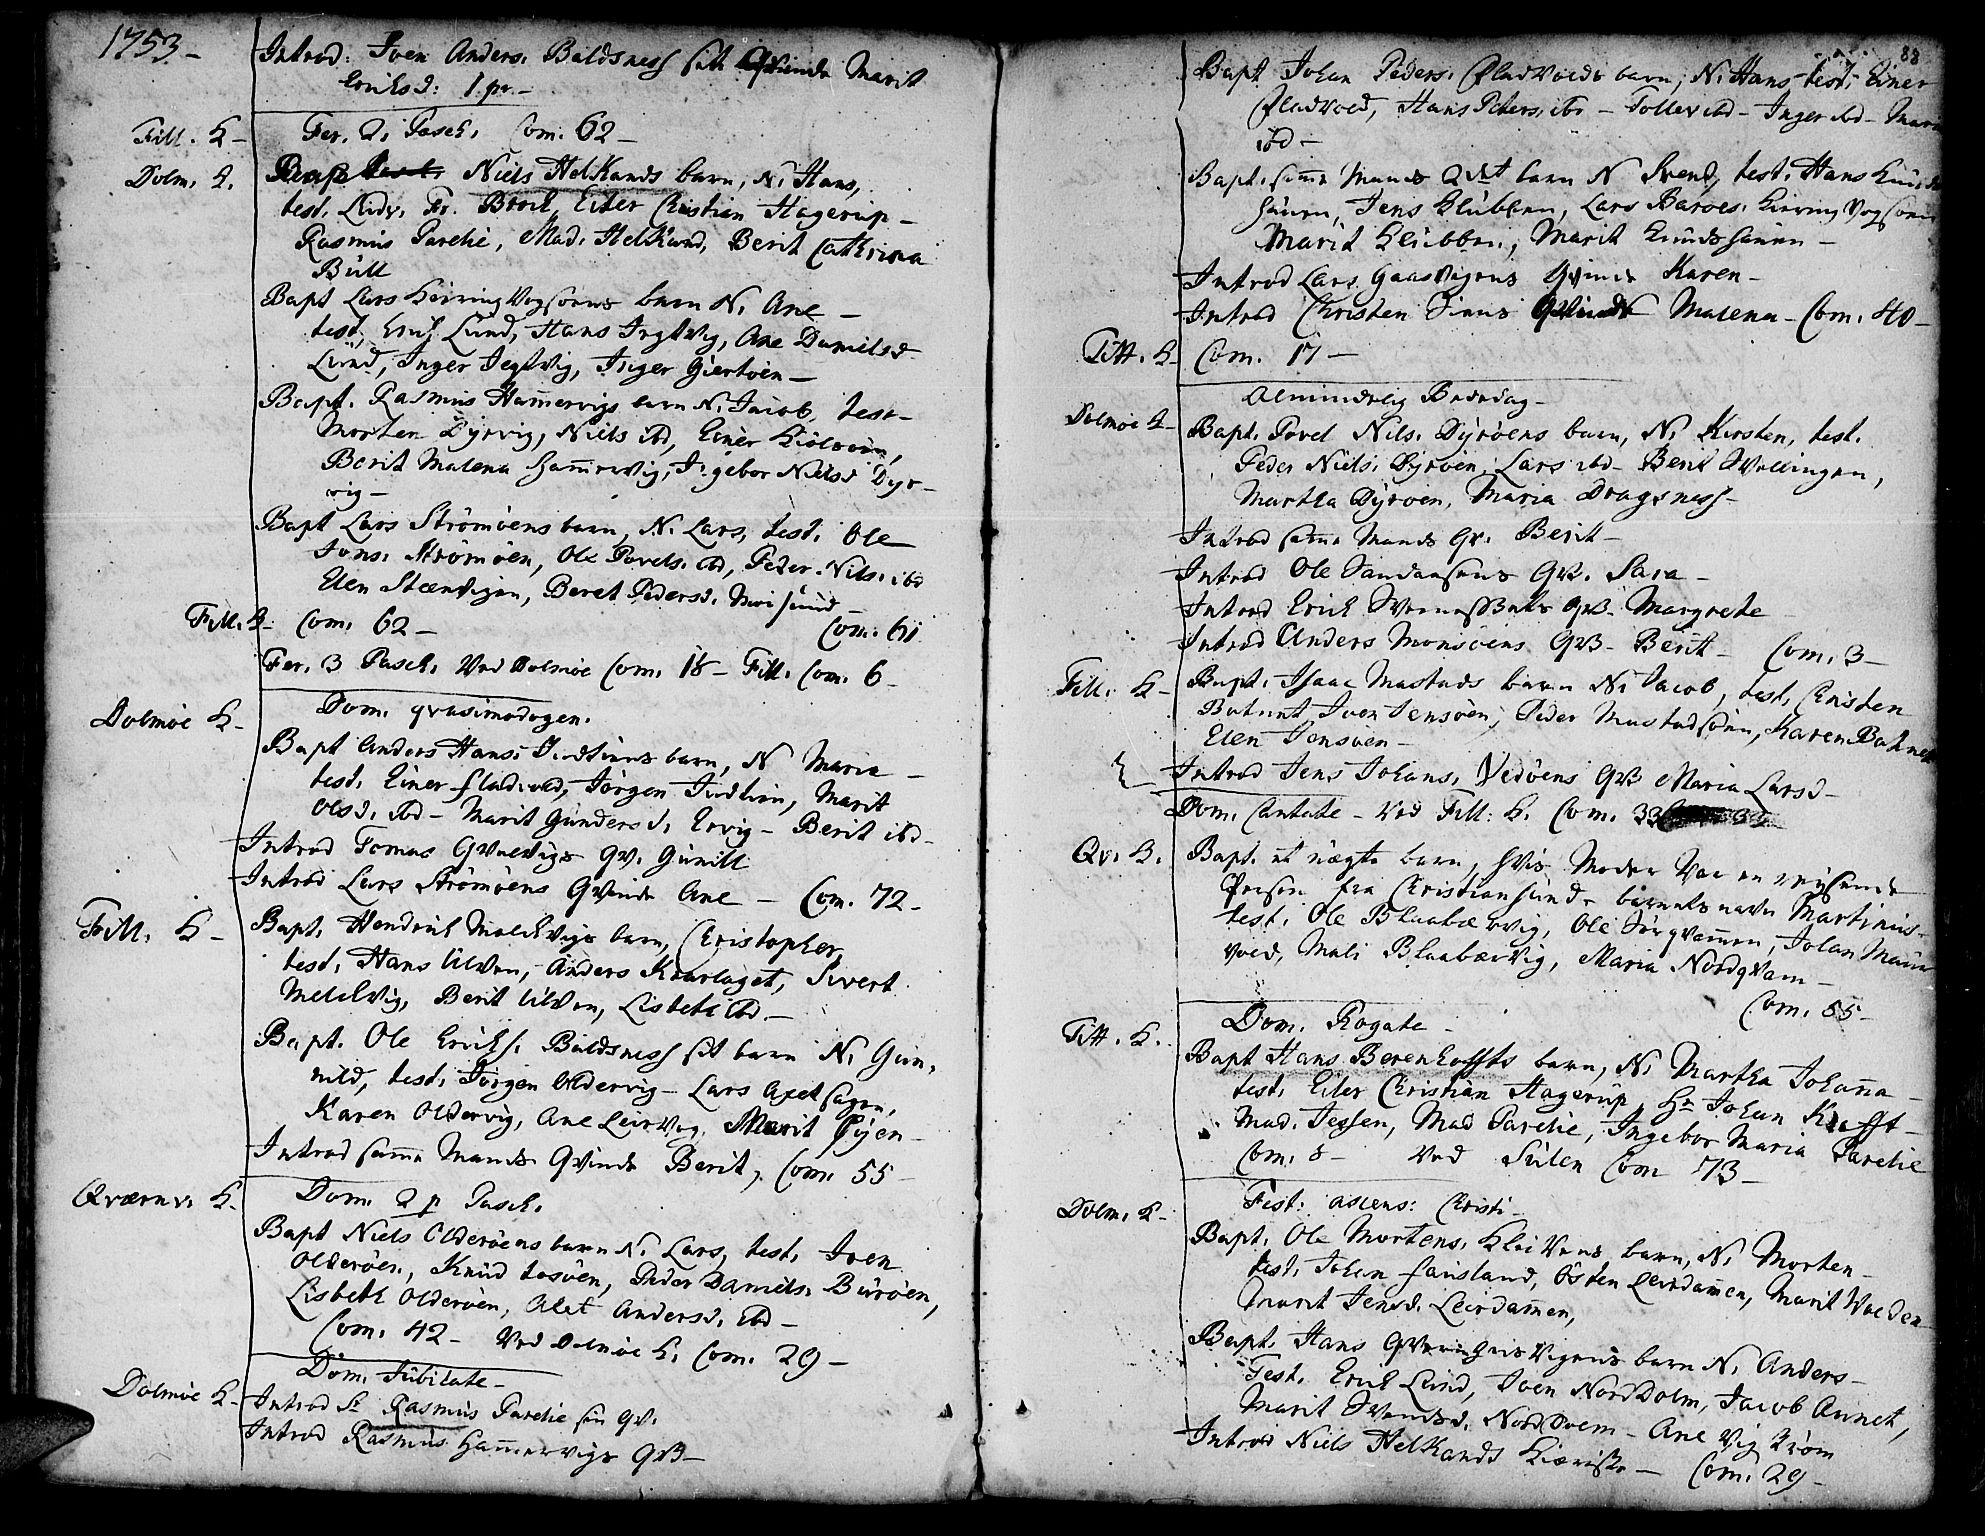 1753-
Introd: Iven Anders. Baldsness sitt Qvinde Marit
Eriksd: 1 pr.-
Fill. K- Fer. 2. Pasch. Com. 62-
Dolm. K. Bapt Niels HelKands barn, N. Hans,
test. Ludv. Fr. Broch, Eiler Christian Hagerup-
Rasmus Parelie, Mad. Helkand, Berit Cathrina
Bull
Bapt Lars Heiring Vogsøens barn N. Ane-
test, Erich Lund, Hans Irgtvig, Ane Danielsd
Lund, Inger Iegtvig, Inger Giertøen-
Bapt. Rasmus Hamervigs barn N. Iacob, test-
Morten Dyrvig, Niels ibd, Einer Kiølsøen,
Berit Malena Hamervig, Ingebor Nielsd Dyr-
vig-
Bapt Lars Strømøens barn, N. Lars, test. Ole
Ions. Strømøen, Ole Povels. ibd, Peder Nils. ibd
Elen Stændigen, Beret Pedersd. Morsund-
Com. 61
Fill. K- Com. 62-
Fer. 3 Pasch. Ved Dolmøe Com. 18- Fill. Com. 6-
Dolmøe K- Dom. qvasimodogen.
Bapt Anders Hans. Iustiens barn, N Maria-
test. Einer Fladvold, Jørgen Iustien, Marit
Olsd. ibd- Marit Gundersd. Ervig- Berit ibd-
Introd Tomas Qvalvigs Qv. Gunill
Introd Lars Strømøens Qvinde Ane- Com. 72-
Fill. K- Bapt. Hendrich Melchvigs barn, Christopher,
test. Hans Ulven, Anders Kaarlaget, Sivert
Melchvig, Berit Ulven, Lisbeth ibd.-
Bapt. Ole Erichs. Baldsness sit barn N. Gun-
nild, test. Jørgen Oldervig- Lars Axelsagen,
Karen Oldervig, Ane Leirvog, Marit Øyen-
Introd samme Mands Qvinde Berit, Com. 55-
Qværnv. K. Dom. 2 p. Pasch.
Bapt Niels Olderøens barn N. Lars, test. Iven
Olderøen, Knud Losøen, Peder Daniels. Burøen,
Lisbeth Olderøen, Alet Andersd. ibd-
Com. 42- Ved Dolmøe K. Com. 29-
Dolmøe K- Dom. Iubilate-
Introd Sr Rasmus Parelie sin Qv.
Introd Rasmus Hamervigs QV-
88
Bapt. Johan Peders. Fladvolds barn, N. Hans- test. Einer
Fladvold, Hans Peters. ibd- Tollev ibd- Inger ibd- Mari
ibd-
Bapt. samme Mands 2det barn N Svend, test. Hans Knuds
hauen, Iens Klubben, Lars Baroes. Hiering Vogsøen
Marit Klubben, Marit Knudshauen-
Introd Lars Gaasvigens Qvinde Karen-
Introd Christen Qvinde Malena- Com. 40-
Fill. K- Com. 17-
Almindelig Bededag-
Dolmøe K- Bapt. Povel Nils. Dyrøens barn, N. Kirsten, test.
Peder Niels. Dyrøen, Lars ibd- Berit Svellingen,
Martha Dyrøen, Maria Dragsness-
Introd samme Mands Qv. Berit-
Introd Ole Sandansens QV. Sara-
Introd Erich QV- Margrete
Introd Anders Monsøens QV- Berit- Com. 3-
Fill. K- Bapt. Isaac Mastads barn N. Iacob, test. Christen
Batnet, Iven Iensøen, Peder Mastadsøen, Karen Batnet
Elen Iensøen-
Introd Iens Johans. Vedøens QV Maria Larsd-
Dom. Cantate- Ved Fill: K. Com. 33
Qv. K. Bapt. et uægte barn, hvis Moder Var en reysende
Person fra Christiansund- barnets navn Martinus-
test. Ole Blaabærvig, Ole Jørgvamen, Iohan Maur
vold, Mali Blaabærvig, Maria Nordqvam-
Com. 55-
Fill. K. Dom. Rogate-
Bapt Hans Berenhoffts barn, N. Martha Johanna-
test. Eiler Christian Hagerup, Hr Johan Krafft-
Mad. Iessen, Mad Parelie, Ingebor Maria Parelie
Com. 8- Ved Sulen Com 73-
Dolm. K- Fest: ascens: Christi-
Bapt. Ole Mortens. Kleivens barn, N. Morten-
test. Johan Fausland, Østen Leirdamen, Marit Volden
Marit Iensd. Leirdamen,
Bapt. Hans barn N. Anders-
Test. Erich Lund, Iven NordDolm, Jacob Annet,
Marit Svendsd. NordDolm- Ane Vig
Introd Niels Helkands Kiæriste- Com. 29-